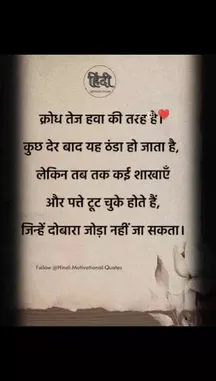 हिंदी
क्रोध तेज हवा की तरह है।
कुछ देर बाद यह ठंडा हो जाता है,
लेकिन तब तक कई शाखाएँ
और पत्ते टूट चुके होते हैं,
जिन्हें दोबारा जोड़ा नहीं जा सकता।
Follow @Hindi.Motivational.Quotes